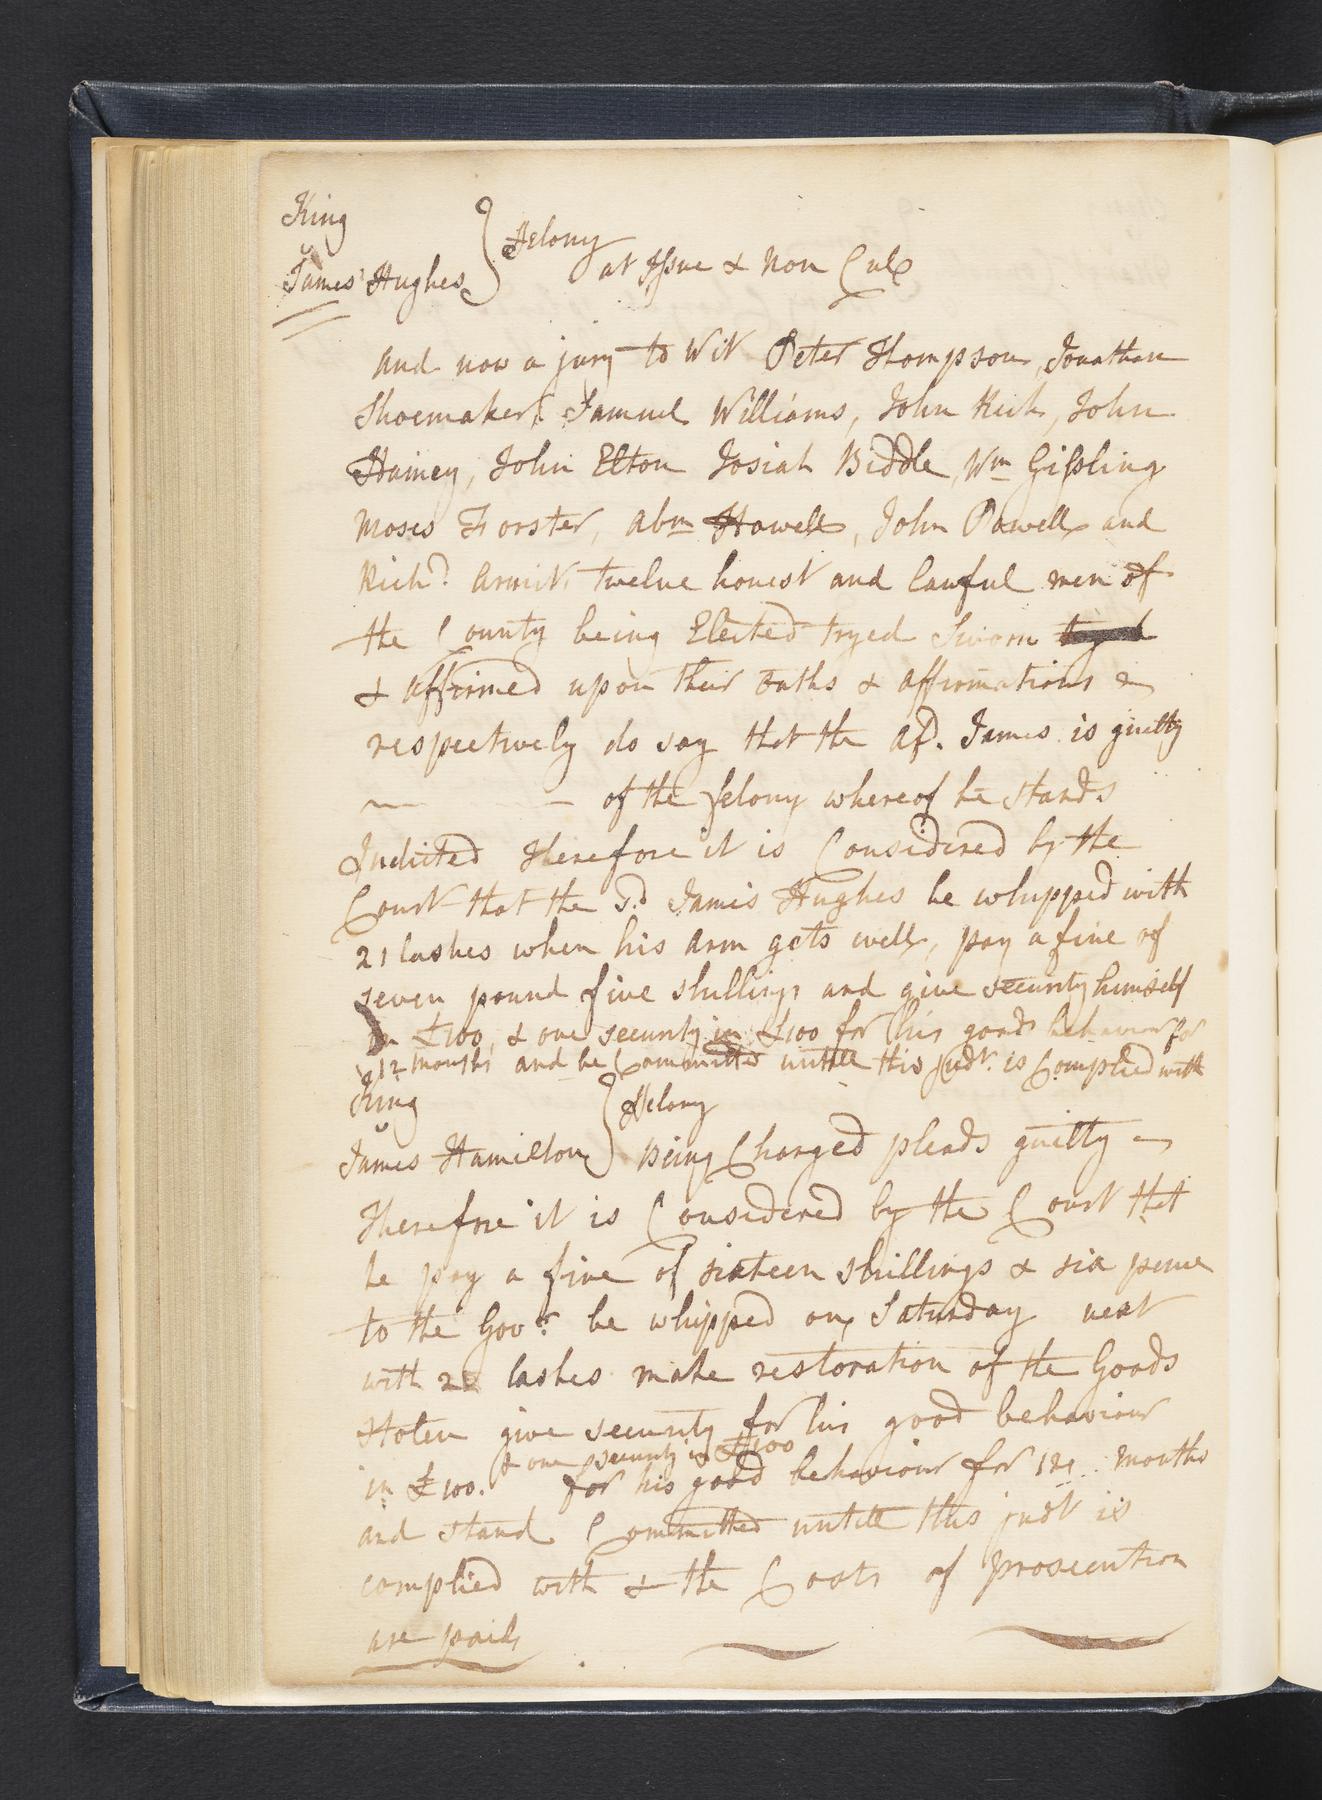 King
v
James Hughes } Felony
at Issue & Non Cul
And now a jury to Wit Peter Thompson, Jonathan
Shoemaker, Samuel Williams, John Rich, John
Hainey, John Elton Josiah Biddle, Wm Gissling
Moses Forster, Abm Howell, John Powell and
Richd. Armit. twelve honest and lawful men of
the County being Elected tryed Sworn tryed
& Affirmed upon their Oaths & affirmations
respectively do say that the afd. James is guilty
of the felony whereof he stands
Indicted Therefore it is Considered by the
Court that the Sd. James Hughes be whipped with
21 lashes when his arm gets well, pay a fine of
seven pound five shillings and give security himself
in £100, & one security in £100 for his good behaviour for
12 months and be Committed untill this Judt. is Complied with
King
v
James Hamilton } Felony
Being Charged pleads guilty
Therefore it is Considered by the Court that
he pay a fine of sixteen shillings & six pence
to the Govr. be whipped on Saturday next
with 21 lashes make restoration of the Goods
Stolen give security for his good behaviour
& one security in £100
in £100. for his good behaviour for 12 months
and stand Committed untill this judt is
complied with & the Costs of prosecution
are paid